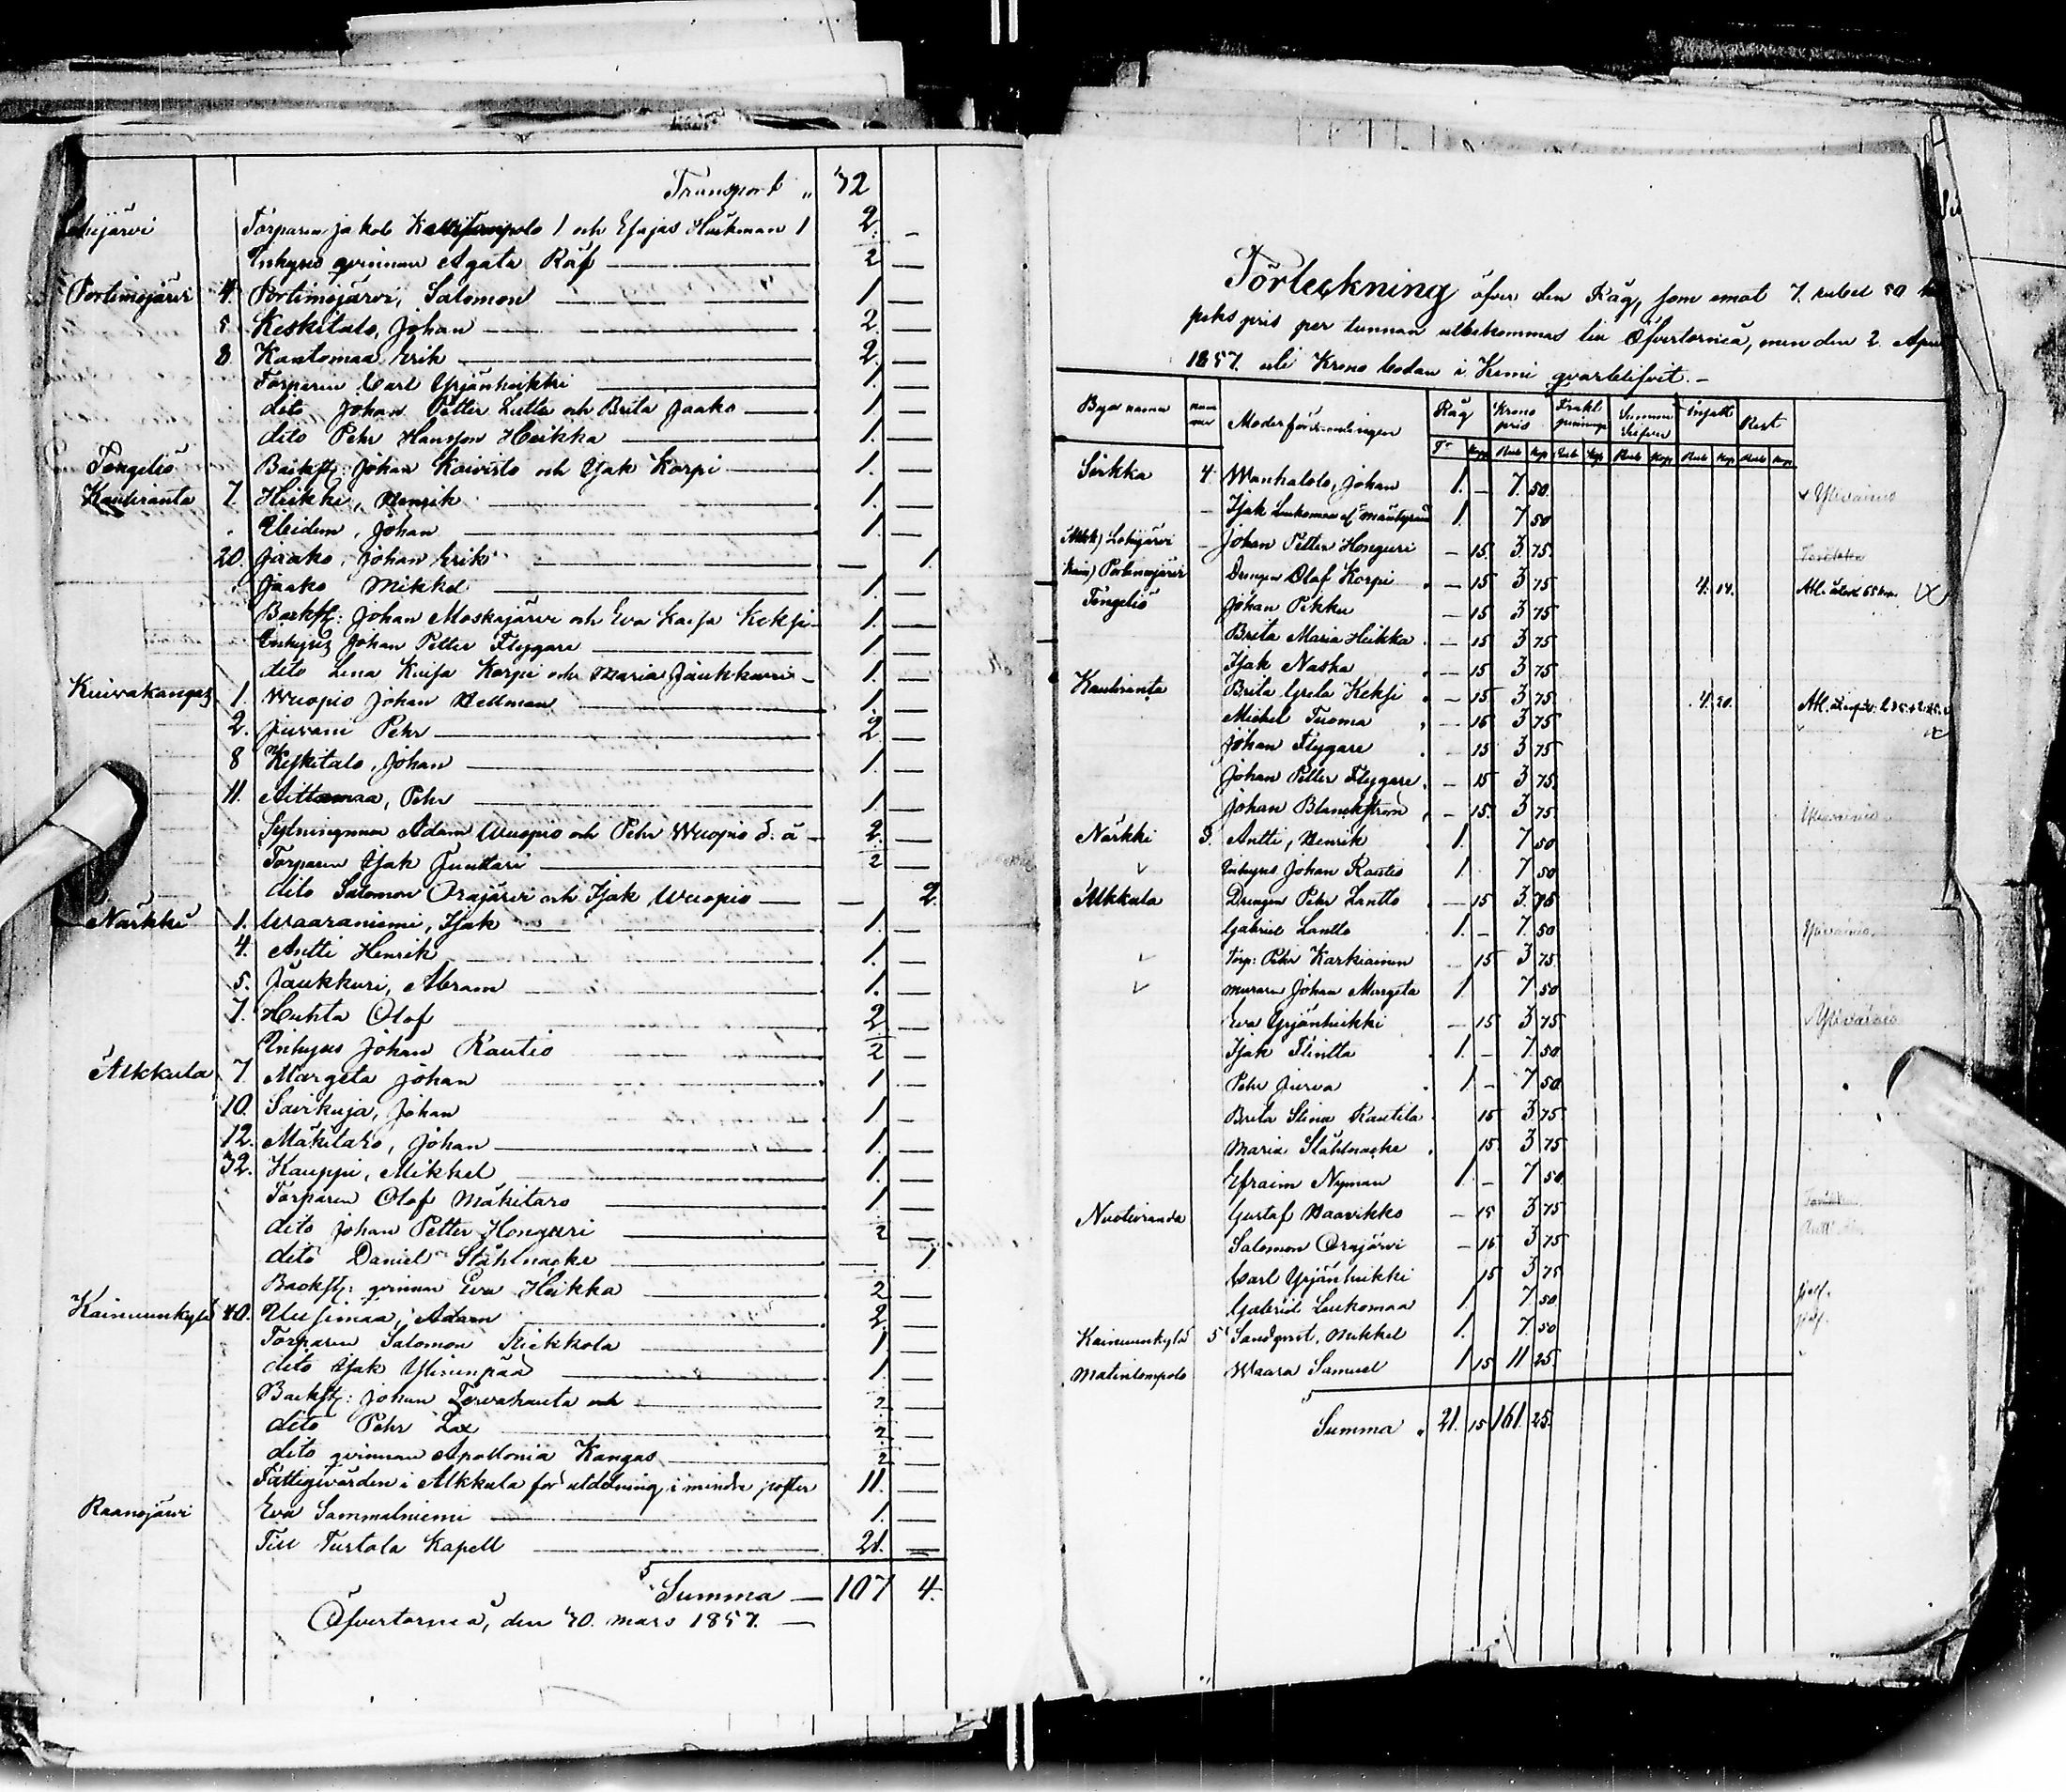 Transport „ 32
Torparen Jakob och Esajas Huikman 1 2 –
Inhyses qvinnan Agata Räf 2 –
Portimojärvi 4. Portimojärvi, Salomon 1. –
5. Keskitalo, Johan 2. –
8 Kantomaa Erik 2. –
Torparen Carl Yrjänheikki 1. –
dito Johan Petter Lutto och Brita Jaako 1. –
dito Pehr Hansson Heikka 1. –
Tengeliö Backst: Johan Koivisto och Isak Korpi 1. –
Kauliranta 7. Heikki, Henrik 1. –
. Johan 1. –
20. Jaako, Johan Erik – 1.
Jaako Mikkel 1. –
Backst: Johan Moskajärvi och Eva Kaisa Keksi 1. –
Inhyses Johan Petter Flyggare 1. –
dito Lena Kaisa Korpi och Maria Jaukkuri 1. –
Kuivakangas 1. Wuopio Johan Hellman 1. –
2. Juvani Pehr 2. –
8 Keskitalo, Johan 1. –
11. Aittamaa, Pehr 1. –
Sytningsman Adam Wuopio och Pehr Wuopio d. ä 2. –
Torparen Isak Junttari 2 –
dito Salomon Orajärvi och Isak Wuopio – 2.
Närkki 1. Waaraniemi, Isak 1. –
4. Antti Henrik 1. –
5. Jaukkuri, Abram 1. –
7. Huhta Olof 2 –
Inhyses Johan Rautio 2 –
Alkkula 7 Margeta Johan 1 –
10. Savikuja, Johan 1 –
12. Mäkitaro, Johan 1. –
32. Kauppi, Mikkel 1. –
Torparen Olof Mäkitaro 1 –
dito Johan Petter Honguri 2 –
dito Daniel Stählnacke – 1
Backst: qvinnan Eva Heikka 2 –
Kainuunkylä 40. Uusimaa, Adam 2. –
Torparen Salomon 1 –
dito Isak Ylinenpää 1. –
Backst: Johan Tervahauta och 2 –
dito Pehr Lax 2 –
dito qvinnan Apollonia Kangas 2 –
Fattigvården i Alkkula för utdelning i mindre poster 11. –
Raanojärvi Eva Sammalniemi 1. –
Till Turtola Kapell 21. –
Summa – 107 4.
Öfvertorneå, den 30. mars 1857. –
Förteckning öfver den Råg, som emot 7. rubel 50 ko
peks pris per tunnan utbekommas till Öfvertorneå, men den 2. April
1857. uti Krono bodan i Kemi qvarblifvit. –
Byar namn Num mer Moderförsamlingen Råg Krono pris Frakt penningar Summa Silfver Insatt Rest
Tr Kpr Rub Kop Rub Kop Rub Kop Rub Kop Rub Kop
Sirkka 4. Wanhatalo, Johan 1. – 7. 50. Ylivainio
– Isak Leukomaa 1. 7 50
Alkk) Lohijärvi – Johan Petter Honguri – 15. 3. 75.
Kain) Portimojärvi Drengen Olof Korpi – 15 3 75 4. 14.
Tengeliö Johan Pekku – 15 3 75
Brita Maria Heikka – 15 3 75
Isak Naska – 15 3 75
Kauliranta Brita Greta Keksi – 15. 3 75. 4. 20.
Michel Tuoma – 15 3 75
Johan Flygare – 15 3 75
Johan Petter Flygare – 15 3 75.
Johan Blanckström – 15. 3 75.
Närkki 3. Antti, Henrik 1. 7 50
Inhyses Johan Rautio 1. 7 50
Alkkula Drengen Pehr Lantto – 15 3. 75
Gabriel Lantto 1. – 7. 50
Torp: Pehr Karkiainen – 15 3 75.
muraren Johan Margeta 1. 7 50
Eva Yrjänheikki – 15 3 75 Ylivainio
Isak Flintta 1. – 7. 50.
Pehr Jurva 1 – 7 50
Brita Stina Rautila 15 3 75
Maria Stählnacke 15 3 75
Efraim Nyman 1. – 7 50.
Nuotioranda Gustaf Haavikko – 15 3 75
Salomon Orajärvi – 15 3 75
Carl Yrjänheikki 15 3 75
Gabriel Leukomaa 1. 7. 50
Kainuunkylä 5 Sandqvist, Mikkel 1. 7. 50
Matinlompolo Waara Samuel 1 15 11 25.
Summa 21. 15 161. 25.